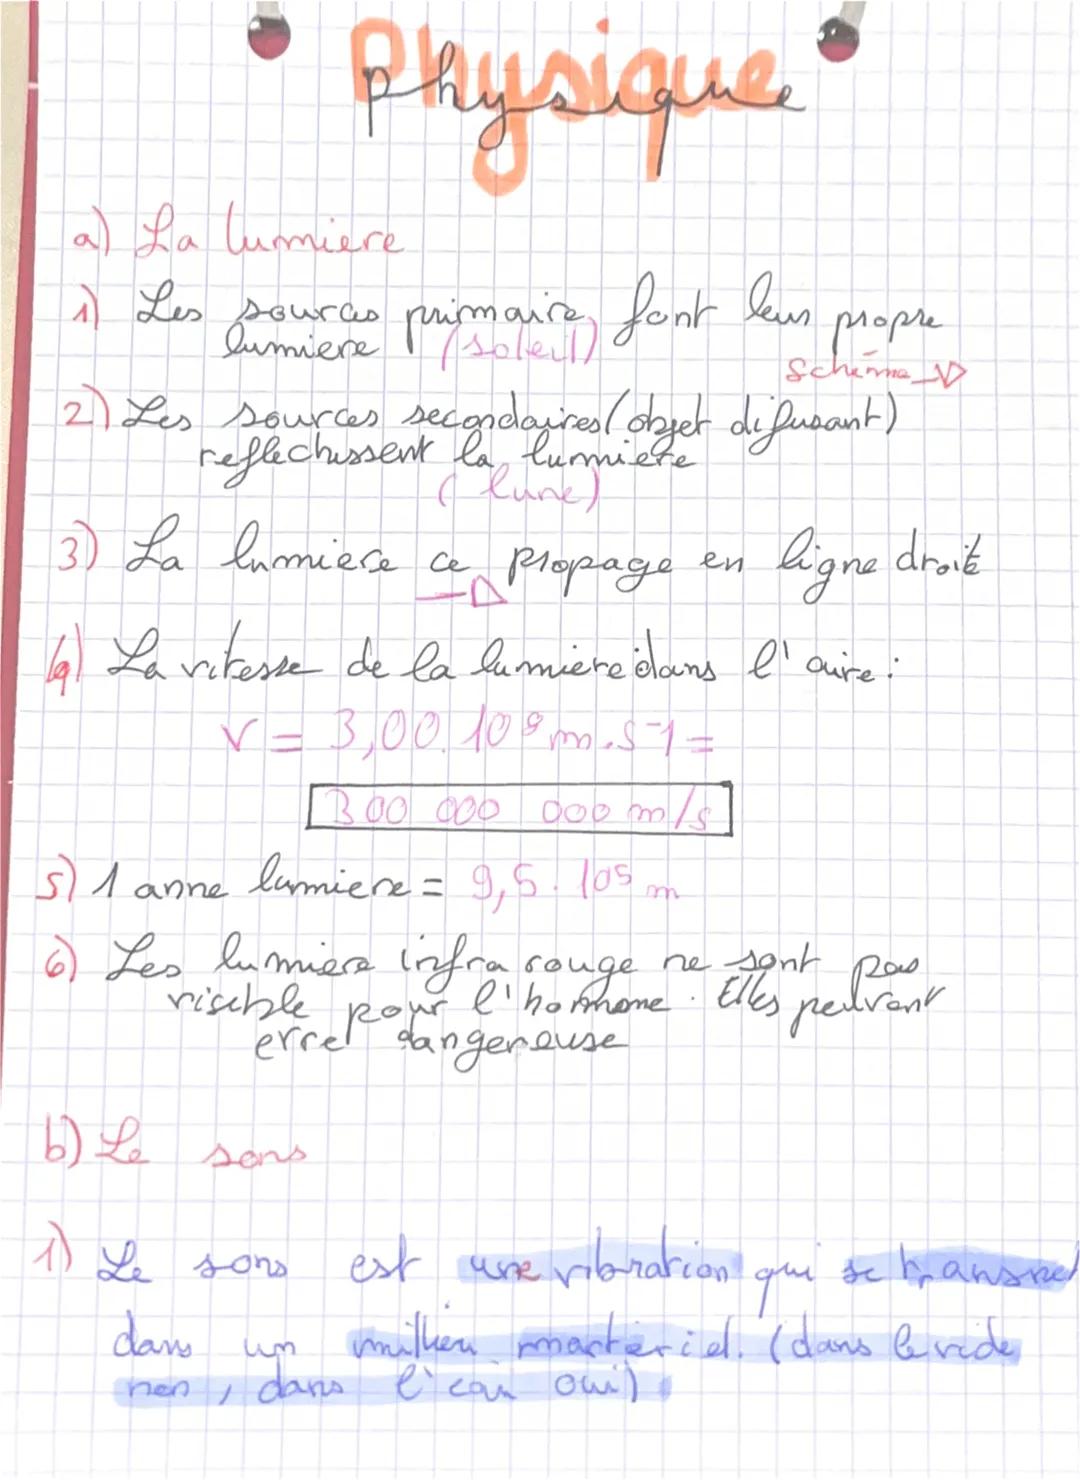 Physique
physique
a) La lumiere
1) Les sources primaire font leur propre
lumiere (soleil)
schéma
2) Les sources secondaires (objet difusant)
reflechissent la lumiere
(lune)
3) La lumiere ce propage en ligne droit
4) La vitesse de la lumiere dans l'aire :
V = 3,00.10⁸ m.s-1 =
300 000 000 m/s
5) 1 anne lumiere = 9,5. 10 m
6) Les lumiere infra rouge ne sont pas
visible pour l'homme. Elles peuvent
etre dangereuse
b) Le sons
1) Le sons est une vibration qui se transmet
dans un millieu materiel. (dans le vide
non, dans l'eau oui)